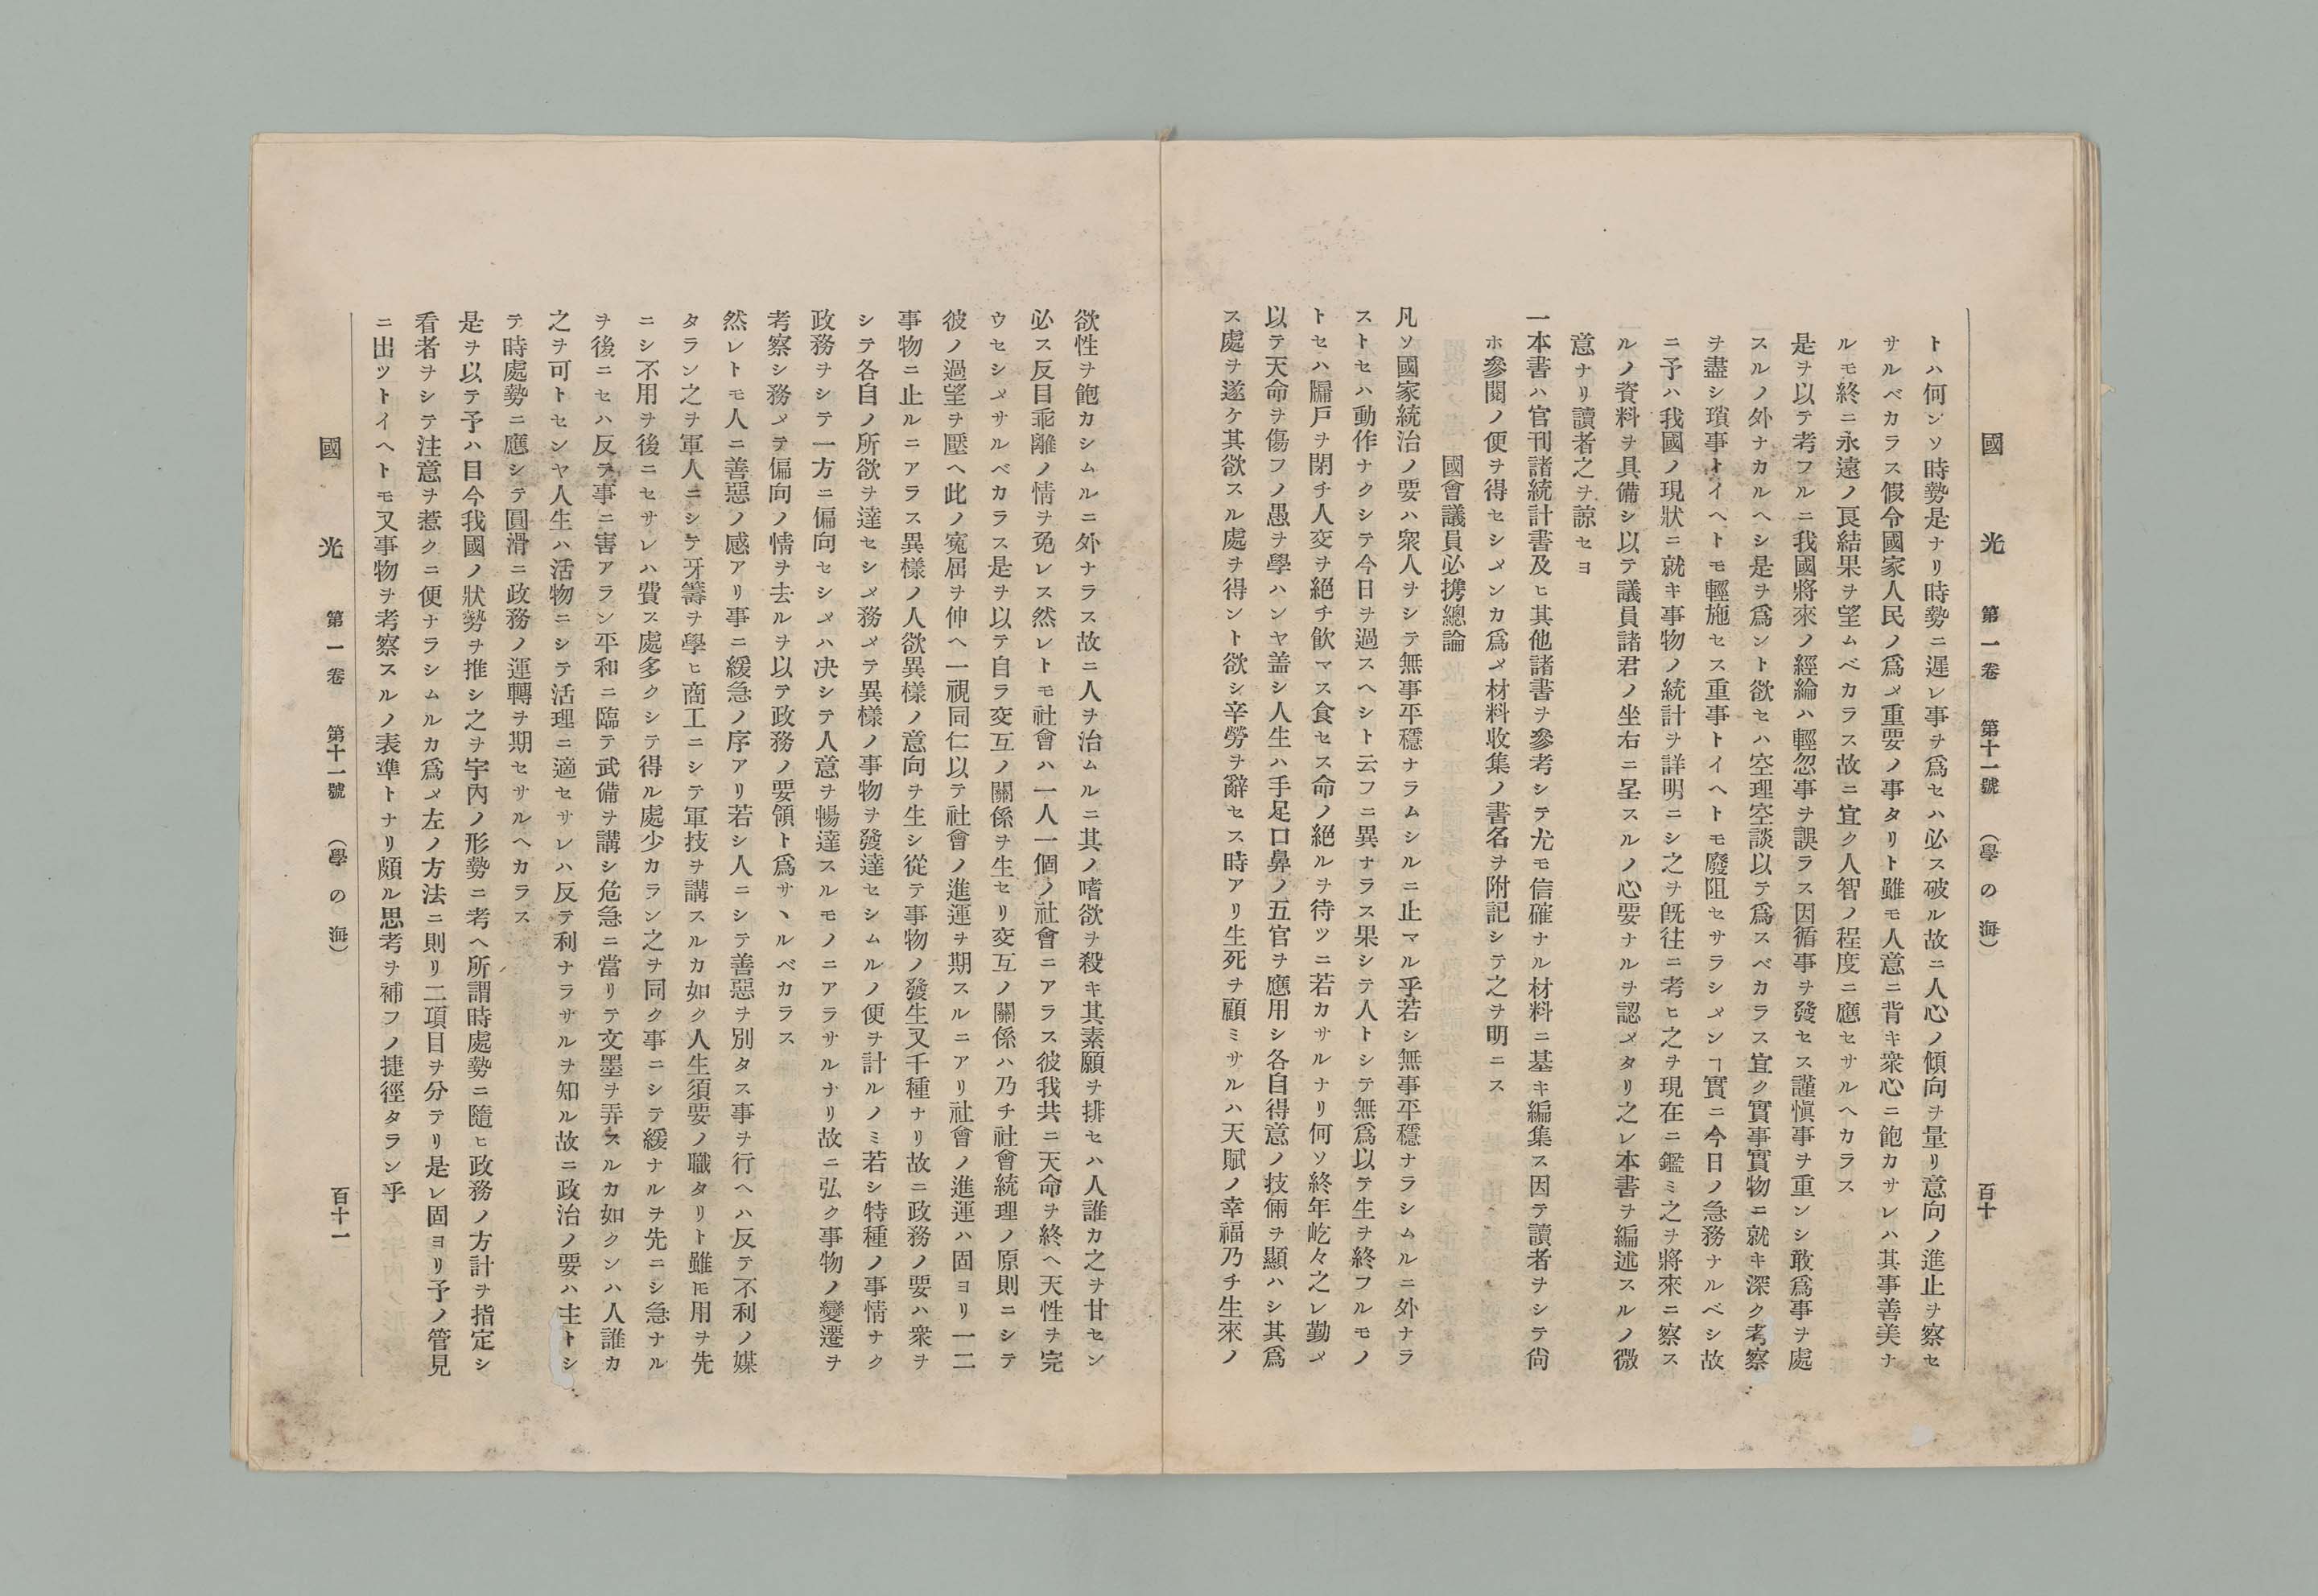 國光 第一卷 第十一號 （學の海） 百十
トハ何ンソ時勢是ナリ時勢ニ遲レ事ヲ爲セハ必ス破ル故ニ人心ノ傾向ヲ量リ意向ノ進止ヲ察セ
サルベカラス假令國家人民ノ爲メ重要ノ事タリト雖モ人意ニ背キ衆心ニ飽カサレハ其事善美ナ
ルモ終ニ永遠ノ良結果ヲ望ムベカラス故ニ宜ク人智ノ程度ニ應セサルヘカラス
是ヲ以テ考フルニ我國將來ノ經綸ハ輕忽事ヲ誤ラス因循事ヲ發セス謹愼事ヲ重ンシ敢爲事ヲ處
スルノ外ナカルヘシ是ヲ爲ント欲セハ空理空談以テ爲スベカラス宜ク實事實物ニ就キ深ク考察
ヲ盡シ瑣事トイヘトモ輕施セス重事トイヘトモ廢阻セサラシメンヿ實ニ今日ノ急務ナルベシ故
ニ予ハ我國ノ現狀ニ就キ事物ノ統計ヲ詳明ニシ之ヲ既往ニ考ヒ之ヲ現在ニ鑑ミ之ヲ將來ニ察ス
ルノ資料ヲ具備シ以テ議員諸君ノ坐右ニ呈スルノ心要ナルヲ認メタリ之レ本書ヲ編述スルノ微
意ナリ讀者之ヲ諒セヨ
一本書ハ官刊諸統計書及ヒ其他諸書ヲ參考シテ尤モ信確ナル材料ニ基キ編集ス因テ讀者ヲシテ尙
ホ參閱ノ便ヲ得セシメンカ爲メ材料收集ノ書名ヲ附記シテ之ヲ明ニス
國會議員必携總論
凡ソ國家統治ノ要ハ衆人ヲシテ無事平穩ナラムシルニ止マル乎若シ無事平穩ナラシムルニ外ナラ
ストセハ動作ナクシテ今日ヲ過スヘシト云フニ異ナラス果シテ人トシテ無爲以テ生ヲ終フルモノ
トセハ牖戸ヲ閉チ人交ヲ絕チ飮マス食セス命ノ絕ルヲ待ツニ若カサルナリ何ソ終年屹々之レ勤メ
以テ天命ヲ傷フノ愚ヲ學ハンヤ盖シ人生ハ手足口鼻ノ五官ヲ應用シ各自得意ノ技倆ヲ顯ハシ其爲
ス處ヲ遂ケ其欲スル處ヲ得ント欲シ辛勞ヲ辭セス時アリ生死ヲ顧ミサルハ天賦ノ幸福乃チ生來ノ
欲性ヲ飽カシムルニ外ナラス故ニ人ヲ治ムルニ其ノ嗜欲ヲ殺キ其素願ヲ排セハ人誰カ之ヲ甘セン
必ス反目乖離ノ情ヲ免レス然レトモ社會ハ一人一個ノ社會ニアラス彼我共ニ天命ヲ終ヘ天性ヲ完
ウセシメサルベカラス是ヲ以テ自ラ交互ノ關係ヲ生セリ交互ノ關係ハ乃チ社會統理ノ原則ニシテ
彼ノ過望ヲ壓ヘ此ノ寃屈ヲ伸ヘ一視同仁以テ社會ノ進運ヲ期スルニアリ社會ノ進運ハ固ヨリ一二
事物ニ止ルニアラス異樣ノ人欲異樣ノ意向ヲ生シ從テ事物ノ發生又千種ナリ故ニ政務ノ要ハ衆ヲ
シテ各自ノ所欲ヲ達セシメ務メテ異樣ノ事物ヲ發達セシムルノ便ヲ計ルノミ若シ特種ノ事情ナク
政務ヲシテ一方ニ偏向セシメハ决シテ人意ヲ暢達スルモノニアラサルナリ故ニ弘ク事物ノ變遷ヲ
考察シ務メテ偏向ノ情ヲ去ルヲ以テ政務ノ要領ト爲サヽルベカラス
然レトモ人ニ善惡ノ感アリ事ニ緩急ノ序アリ若シ人ニシテ善惡ヲ別タス事ヲ行ヘハ反テ不利ノ媒
タラン之ヲ軍人ニシテ牙籌ヲ學ヒ商工ニシテ軍技ヲ講スルカ如ク人生須要ノ職タリト雖𪜈用ヲ先
ニシ不用ヲ後ニセサレハ費ス處多クシテ得ル處少カラン之ヲ同ク事ニシテ緩ナルヲ先ニシ急ナル
ヲ後ニセハ反テ事ニ害アラン平和ニ臨テ武備ヲ講シ危急ニ當リテ文墨ヲ弄スルカ如クンハ人誰カ
之ヲ可トセンヤ人生ハ活物ニシテ活理ニ適セサレハ反テ利ナラサルヲ知ル故ニ政治ノ要ハ主トシ
テ時處勢ニ應シテ圓滑ニ政務ノ運轉ヲ期セサルヘカラス
是ヲ以テ予ハ目今我國ノ狀勢ヲ推シ之ヲ宇內ノ形勢ニ考ヘ所謂時處勢ニ隨ヒ政務ノ方計ヲ指定シ
看者ヲシテ注意ヲ惹クニ便ナラシムルカ爲メ左ノ方法ニ則リ二項目ヲ分テリ是レ固ヨリ予ノ管見
ニ出ツトイヘトモ又事物ヲ考察スルノ表準トナリ頗ル思考ヲ補フノ捷徑タラン乎
國光 第一卷 第十一號 （學の海） 百十一